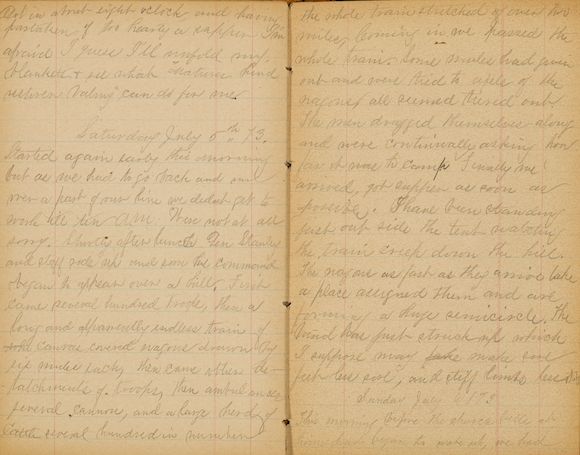 Got in about eight o'clock and having
partaken of too hearty a supper I am
afraid I guess I'll unfold my
blankets & see what "Natures kind
restorer Balmy" can do for me.
Saturday July 5th 73.
Started again early this morning
but as we had to go back and run
over a part of our line we didnt get to
work till ten A.M. Were not at all
sorry. Shortly after lunch Gen Stanley
and staff rode up and soon the command
began to appear over a hill. First
came several hundred troops, then a
long and apparently endless train of
canvas covered wagons drawn by
six mules each, then came other de-
tatchments of troops, then ambulances
several cannon, and a large herd of
Cattle several hundred in number
the whole train stretched of over two
miles, Coming in we passed the
whole train. Some mules had given
out and were tied to axels of the
wagons, all seemed tired out.
The men dragged themselves along
and were continually asking how
far it was to camp. Finally we
arrived, got supper as soon as
possible. I have been standing
just out side the tent watching
the train creep down the hill.
The wagons as fast as they arrive take
a place assigned them and are
forming a huge semicircle. The
band has just struck up which
I suppose may make sore
feet less sore, and stiff limbs less stiff
Sunday July 6 73
This morning before the
began to we had